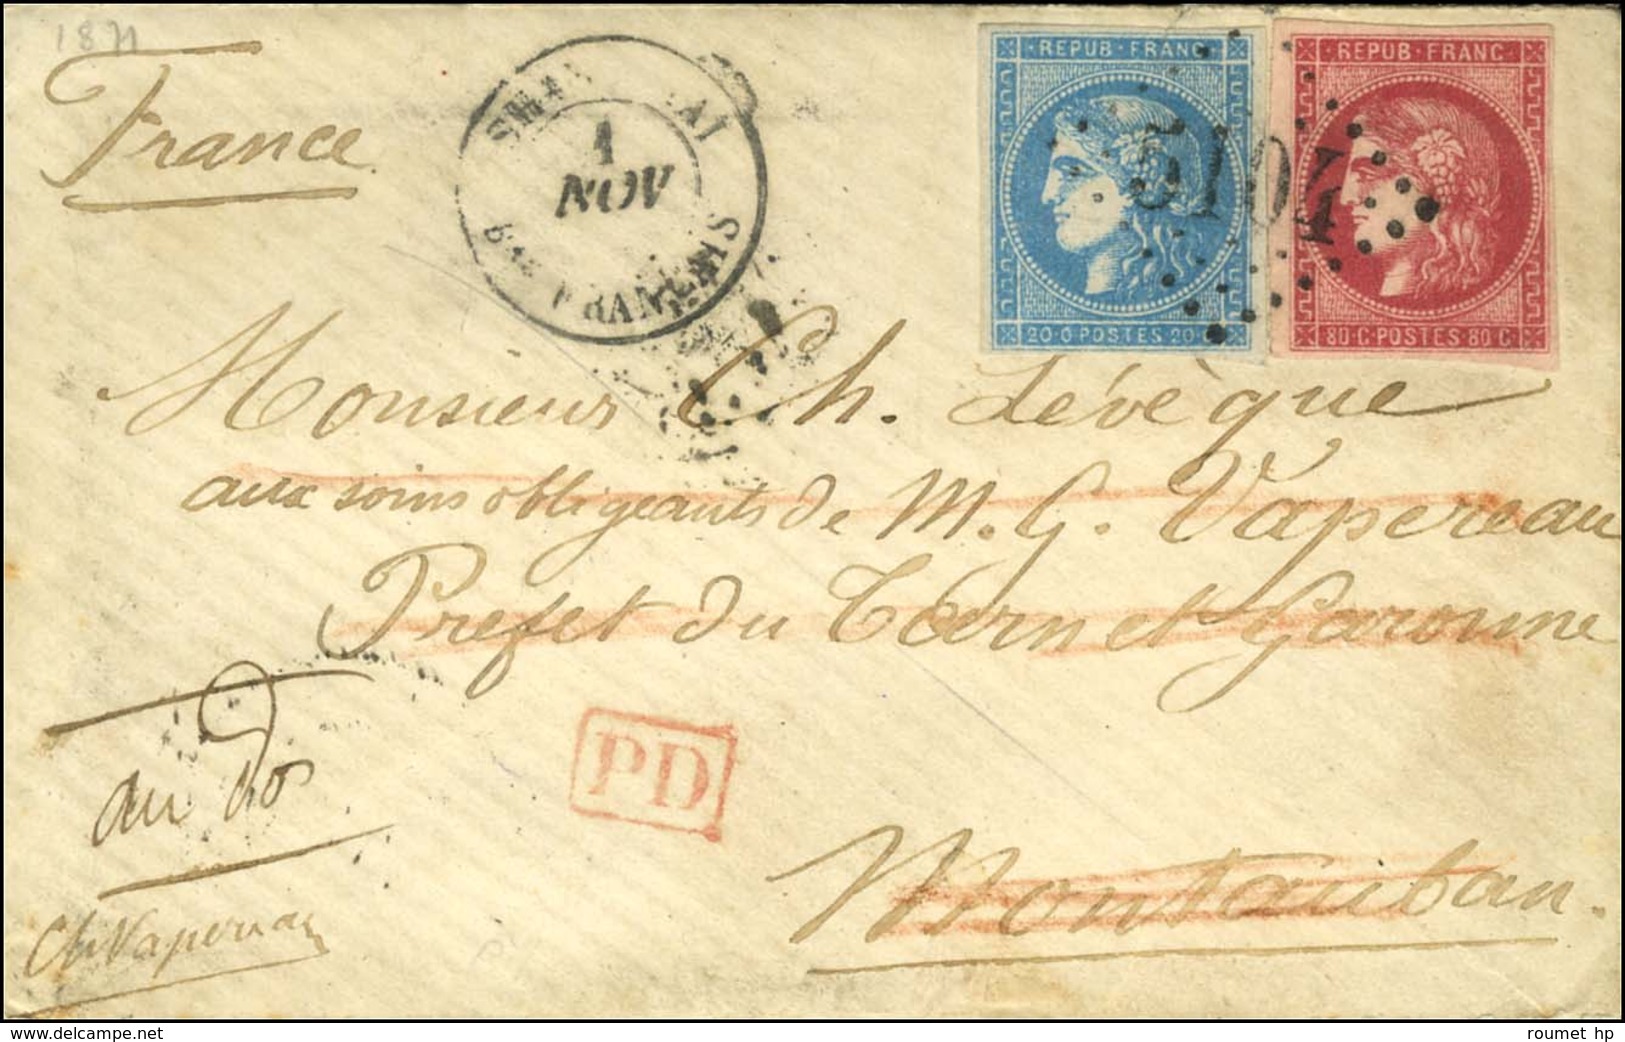 1871
France
1
NOV
Bau FRANCAIS
REPUB · FRANC
20 · C POSTES 20
REPUB · FRANC
80 · C · POSTES · 80 C
5104
Monsieur Ch. Lévêque
aux soins obligeants de M. G. Vapereau
Préfet du Tarn et Garonne
au dos
PD
Montauban.
G Vapereau
www.delcampe.net
roumet hp